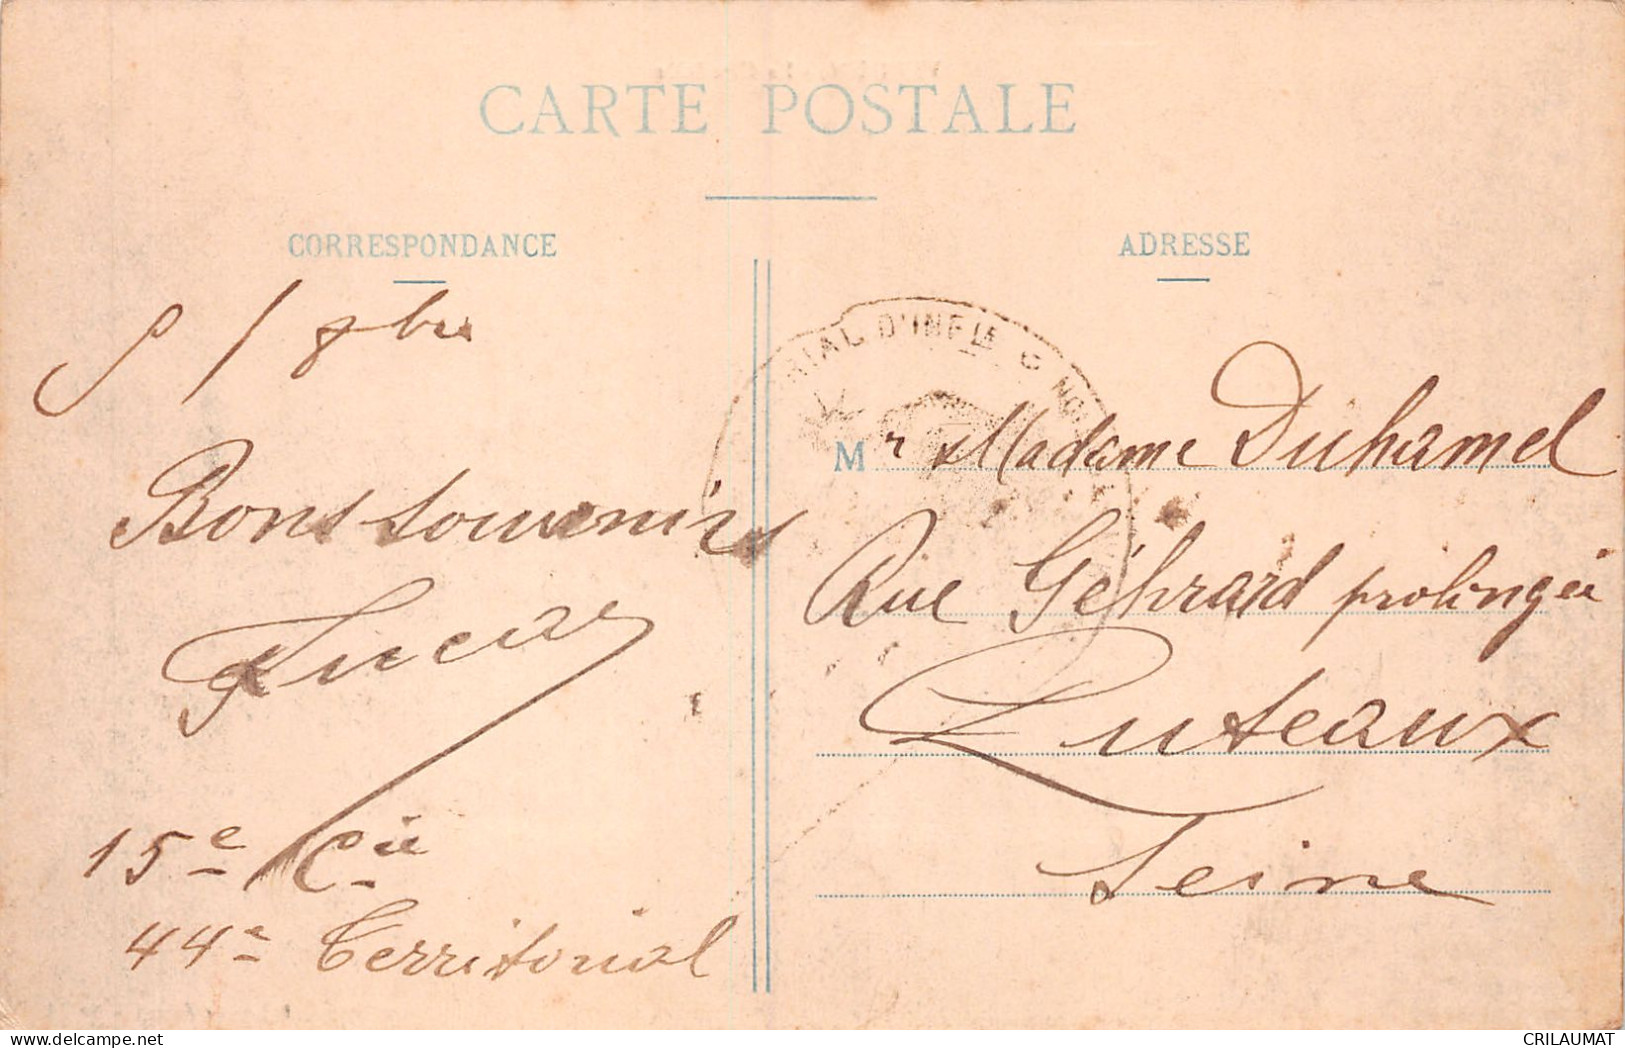 CARTE POSTALE
CORRESPONDANCE
ADRESSE
8bre
Bons souvenirs
Lucas
15e Cie
44e Territorial
RIAL D'INFIE
Mr Madame Duhamel
Rue Géhrard prolongée
Puteaux
Seine
CRILAUMAT